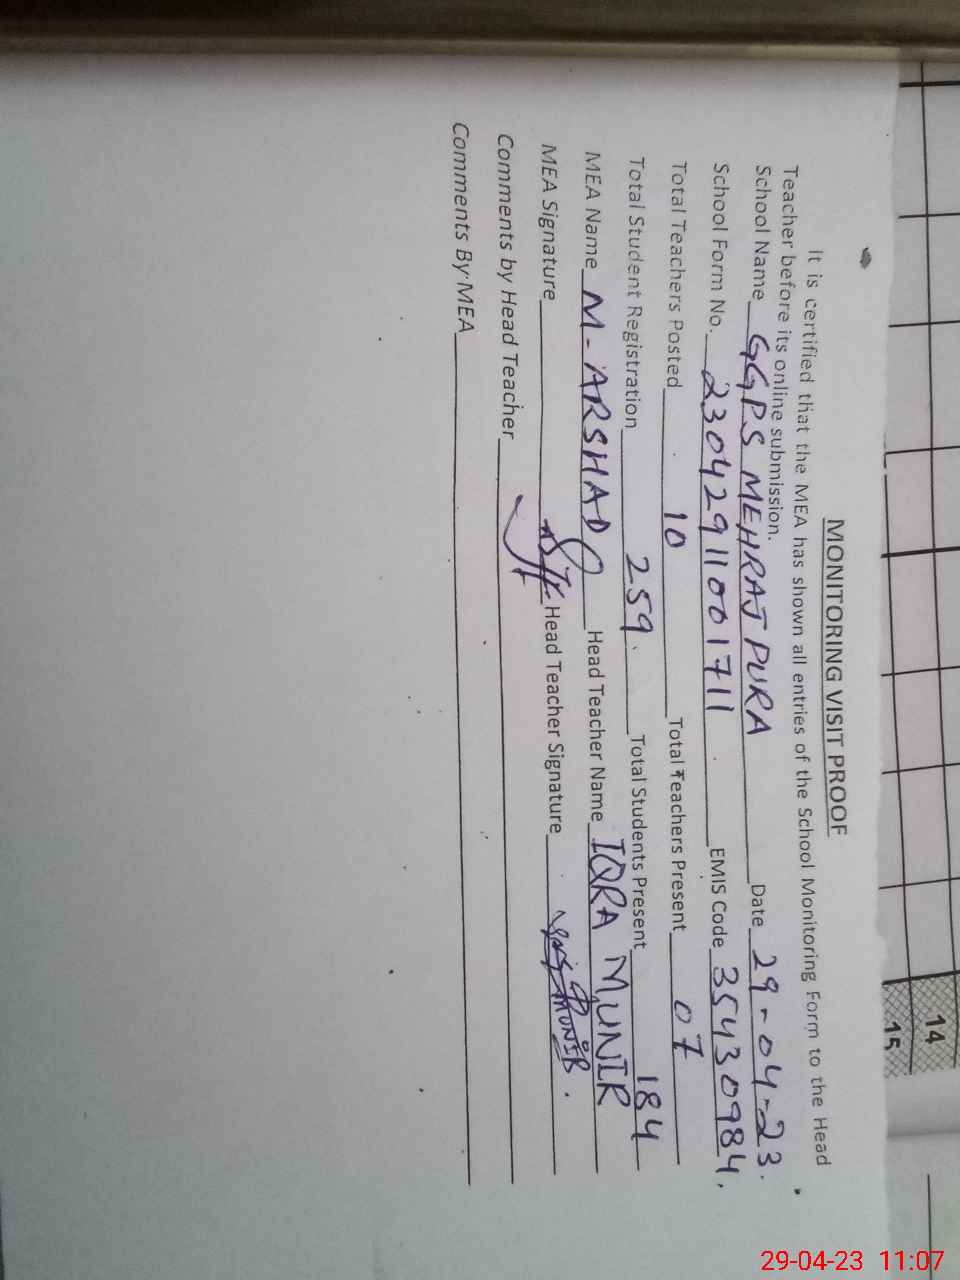 MONITORING VISIT PROOF
It is certified that the MEA has shown all entries of the School Monitoring Form to the Head
Teacher before its online submission.
School Name GGPS MEHRAJ PURA Date 29-04-23.
School Form No. 23042911001711 EMIS Code 35430984.
Total Teachers Posted 10 Total Teachers Present 07
Total Student Registration 259. Total Students Present 184
MEA Name M-ARSHAD Head Teacher Name IQRA MUNIR
MEA Signature Head Teacher Signature MUNIR.
Comments by Head Teacher
Comments By MEA
14
15
29-04-23 11:07